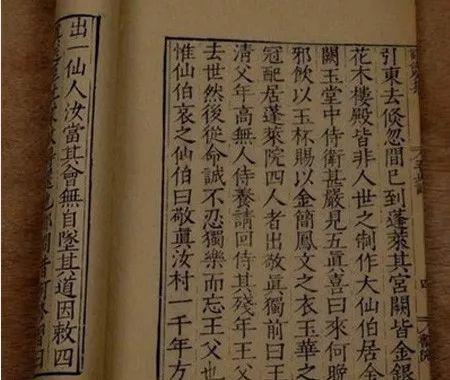 引東去倏忽間已到蓬萊其宮闕皆金銀
花木樓殿皆非人世之制作大仙伯居金
闕玉堂中侍衛甚嚴見五眞喜曰來何晚
邪飲以玉杯賜以金簡鳳文之衣玉華之
冠配居蓬萊院四人者出敬眞獨前曰王
清父年高無人侍養請回侍其殘年王父
去世然後從命誠不忍獨樂而忘王父也
惟仙伯哀之仙伯曰敬眞汝村一千年方
出一仙人汝當其會無自墜其道因敕四